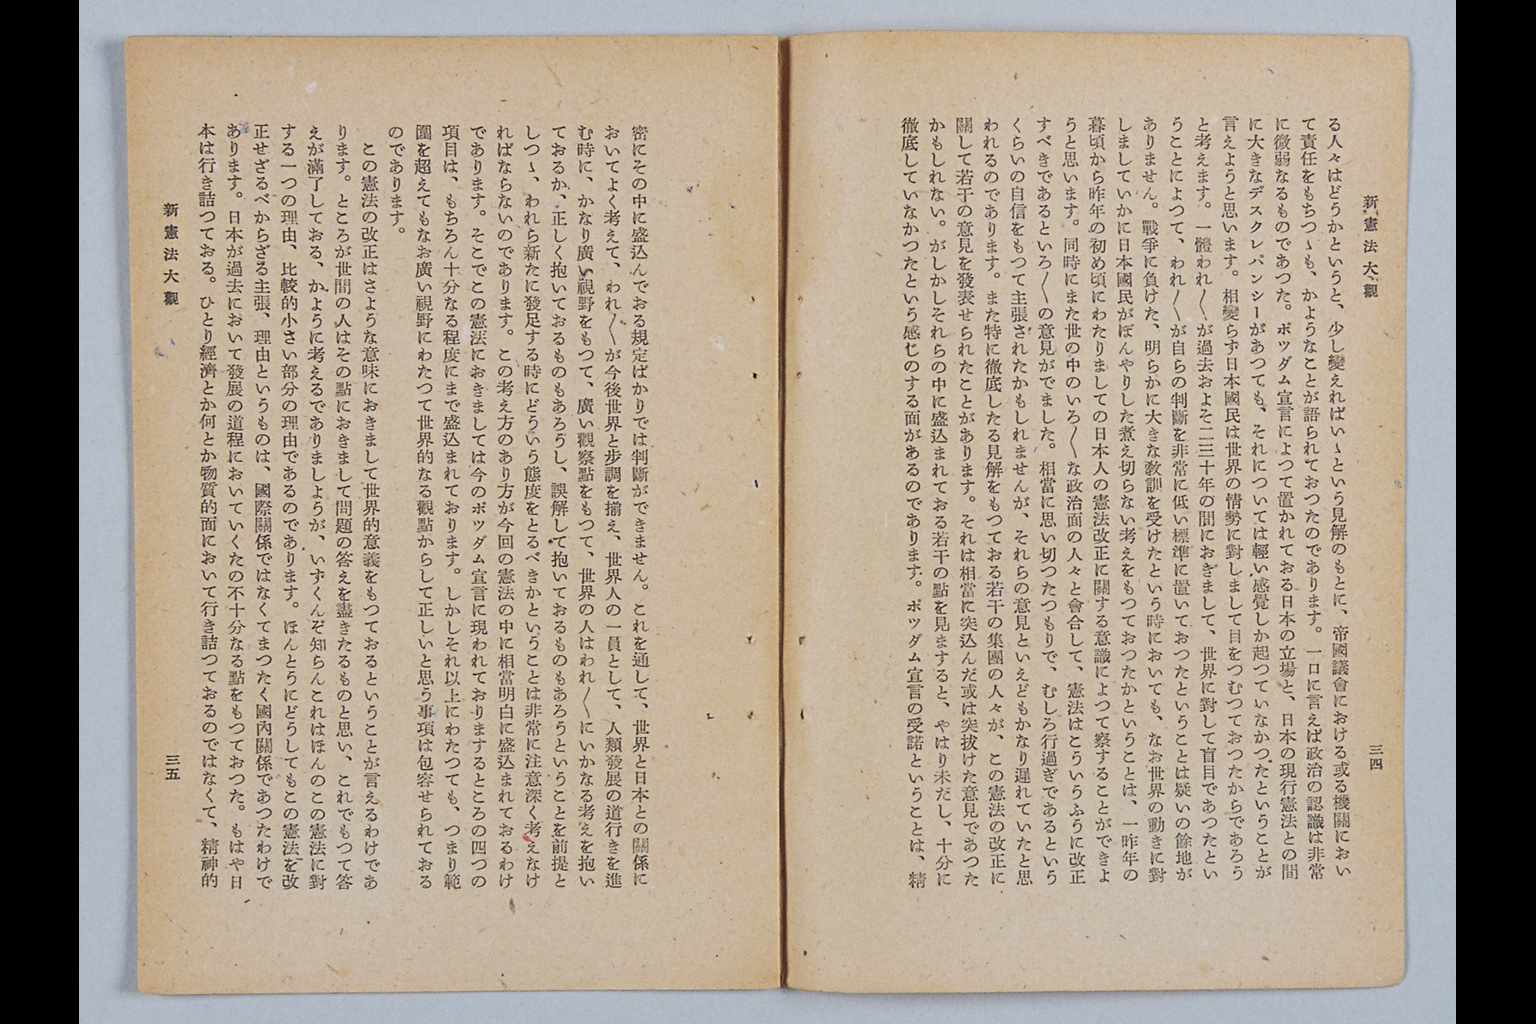 新憲法大觀
三四
る人々はどうかというと、少し變えればいゝという見解のもとに、帝國議會における或る機關におい
て責任をもちつゝも、かようなことが語られておつたのであります。一口に言えば政治の認識は非常
に微弱なるものであつた。ポツダム宣言によつて置かれておる日本の立場と、日本の現行憲法との間
に大きなデスクレパンシーがあつても、それについては輕い感覺しか起つていなかつたということが
言えようと思います。相變らず日本國民は世界の情勢に對しまして目をつむつておつたからであろう
と考えます。一體われ〳〵が過去およそ二三十年の間におきまして、世界に對して盲目であつたとい
うことによつて、われ〳〵が自らの判斷を非常に低い標準に置いておつたということは疑いの餘地が
ありません。戰爭に負けた、明らかに大きな敎訓を受けたという時においても、なお世界の動きに對
しましていかに日本國民がぼんやりした煮え切らない考えをもつておつたかということは、一昨年の
暮頃から昨年の初め頃にわたりましての日本人の憲法改正に關する意識によつて察することができよ
うと思います。同時にまた世の中のいろ〳〵な政治面の人々と會合して、憲法はこういうふうに改正
すべきであるといろ〳〵の意見がでました。相當に思い切つたつもりで、むしろ行過ぎであるという
くらいの自信をもつて主張されたかもしれませんが、それらの意見といえどもかなり遲れていたと思
われるのであります。また特に徹底したる見解をもつておる若干の集團の人々が、この憲法の改正に
關して若干の意見を發表せられたことがあります。それは相當に突込んだ或は突拔けた意見であつた
かもしれない。がしかしそれらの中に盛込まれておる若干の點を見ますると、やはり未だし、十分に
徹底していなかつたという感じのする面があるのであります。ポツダム宣言の受諾ということは、精
密にその中に盛込んでおる規定ばかりでは判斷ができません。これを通して、世界と日本との關係に
おいてよく考えて、われ〳〵が今後世界と步調を揃え、世界人の一員として、人類發展の道行きを進
む時に、かなり廣い視野をもつて、廣い觀察點をもつて、世界の人はわれ〳〵にいかなる考えを抱い
ておるか、正しく抱いておるものもあろうし、誤解して抱いておるものもあろうということを前提と
しつゝ、われら新たに發足する時にどういう態度をとるべきかということは非常に注意深く考えなけ
ればならないのであります。この考え方のあり方が今回の憲法の中に相當明白に盛込まれておるわけ
であります。そこでこの憲法におきましては今のポツダム宣言に現われておりまするところの四つの
項目は、もちろん十分なる程度にまで盛込まれております。しかしそれ以上にわたつても、つまり範
圍を超えてもなお廣い視野にわたつて世界的なる觀點からして正しいと思う事項は包容せられておる
のであります。
この憲法の改正はさような意味におきまして世界的意義をもつておるということが言えるわけであ
ります。ところが世間の人はその點におきまして問題の答えを盡きたるものと思い、これでもつて答
えが滿了しておる、かように考えるでありましようが、いずくんぞ知らんこれはほんのこの憲法に對
する一つの理由、比較的小さい部分の理由であるのであります。ほんとうにどうしてもこの憲法を改
正せざるべからざる主張、理由というものは、國際關係ではなくてまつたく國內關係であつたわけで
あります。日本が過去において發展の道程においていくたの不十分なる點をもつておつた。もはや日
本は行き詰つておる。ひとり經濟とか何とか物質的面において行き詰つておるのではなくて、精神的
新憲法大觀
三五